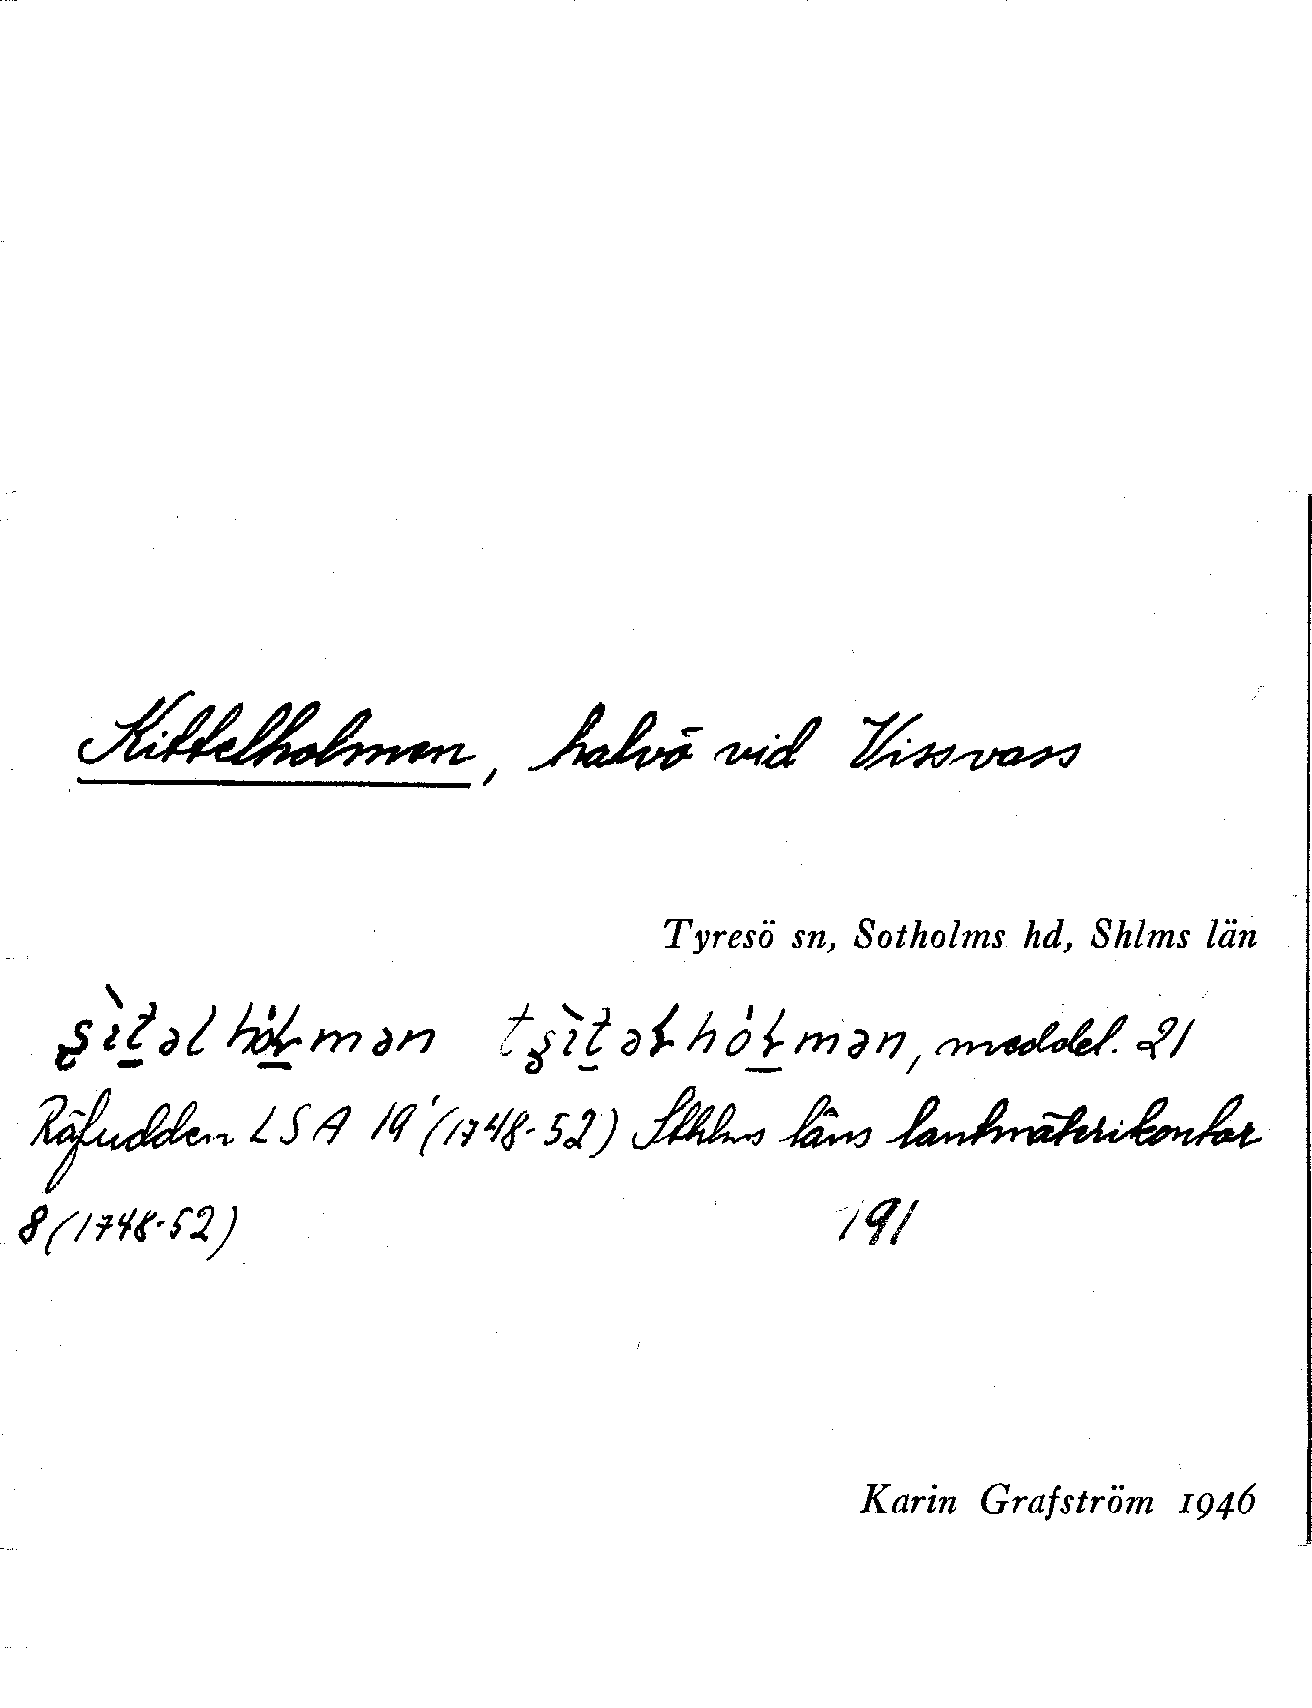 Kittelholmen, halvö vid Vissvass
Tyresö sn, Sotholms hd, Shlms län
meddel. 21
Räfudden LSA 19 (1748-52) Sthlms läns lantmäterikontor
8 (1748-52) 191
Karin Grafström 1946